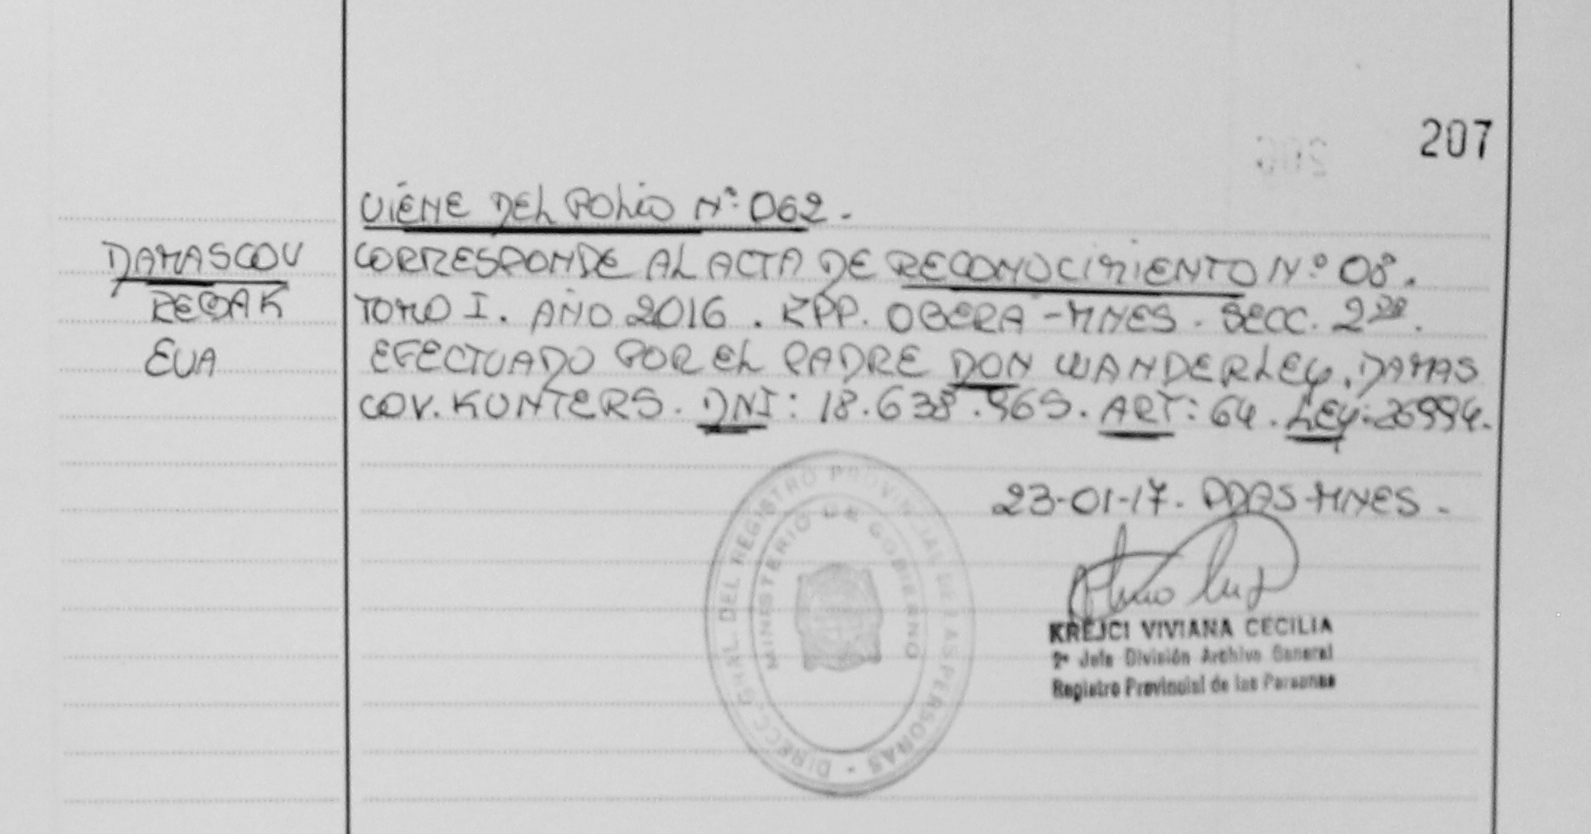 207
VIENE DEL FOLIO Nº 062.
DAMASCOV
CORRESPONDE AL ACTA DE RECONOCIMIENTO Nº 08.
TOMO I. AÑO 2016. RPP. OBERA-MNES. SECC. 2
EVA
EFECTUADO POR EL PADRE DON WANDERLEY, DAMAS
COV. KUNTERS. DNI: 18.638.965. ART: 64. LEY: 26994.
23-01-17. PDAS-MNES.
KREJCI VIVIANA CECILIA
2º Jefe División Archivo General
Registro Provincial de las Personas
DIRECC. GRAL. DEL REGISTRO PROVINCIAL DE LAS PERSONAS
MINISTERIO DE GOBIERNO